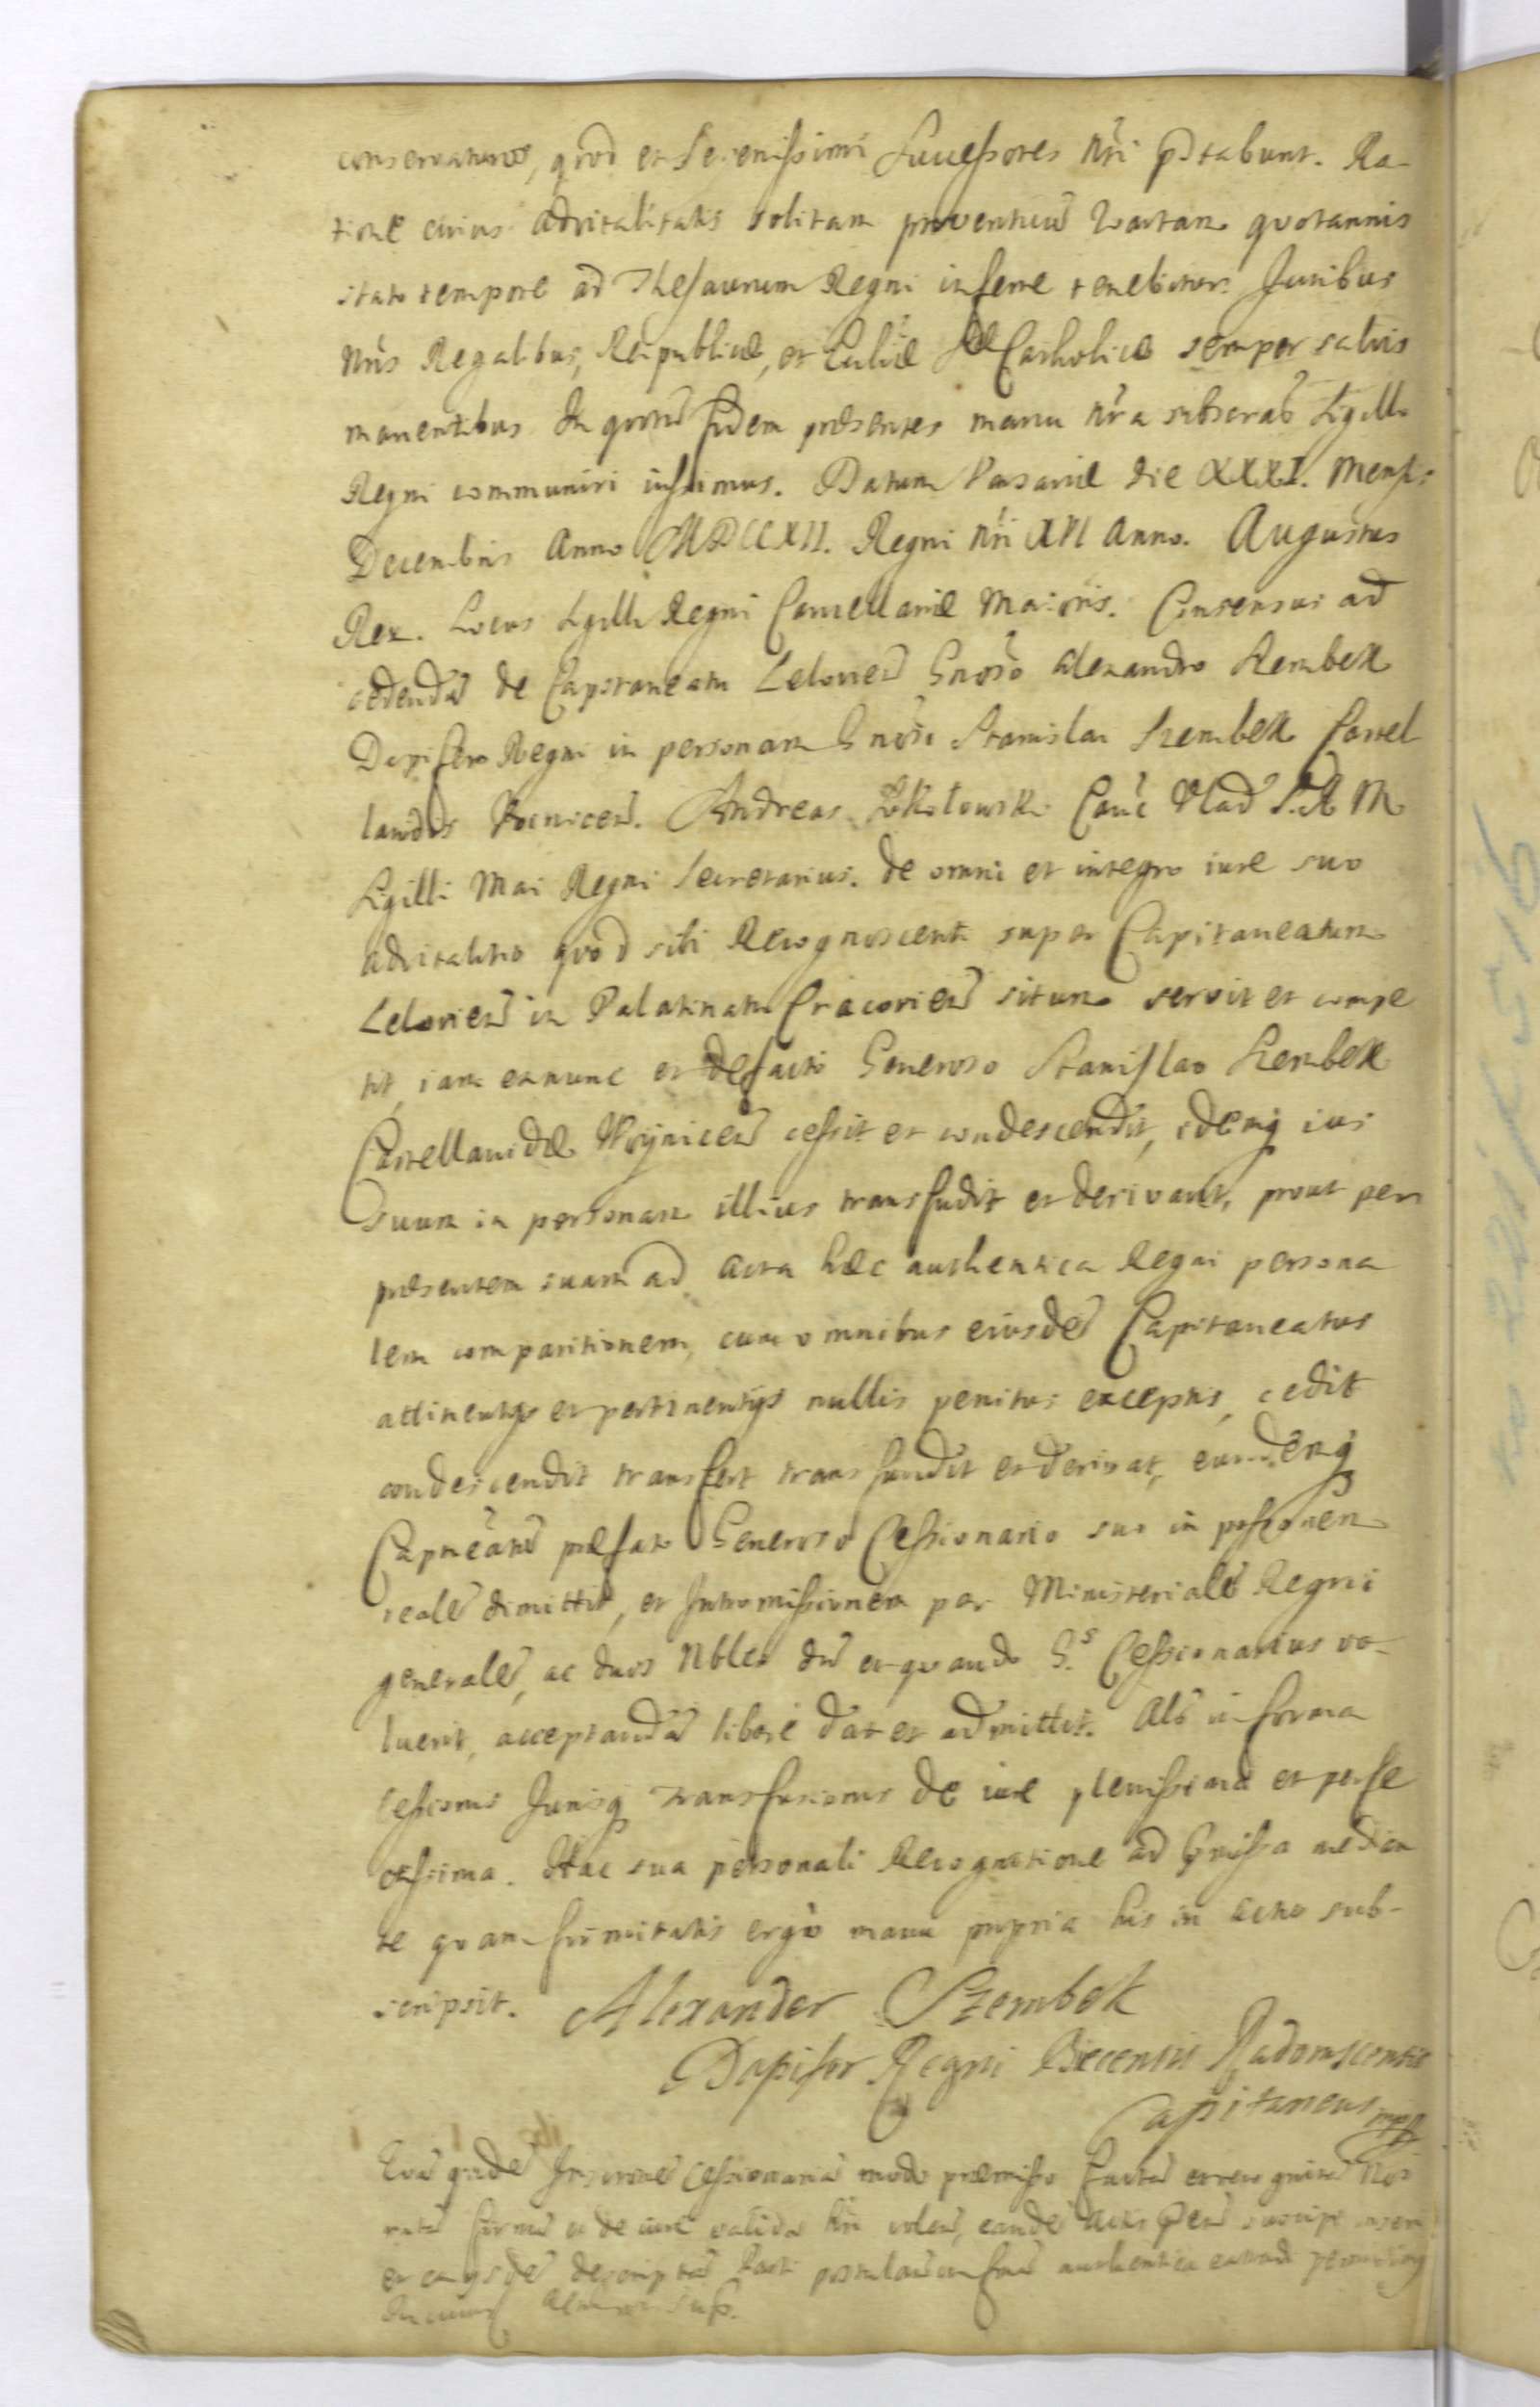 conservaturos, quod et Serenissimi Successores nr̃i p̃stabunt. Ra-
tione cuius advitalitatis solitam proventuũ quartam quotannis
stato tempore ad Thesaurum Regni inferre tenebitur. Juribus
nr̃is Regalibus, Reipublicæ, et Ecclıæ Catholicæ semper salvis
manentibus. In quorũ fidem præsentes manu nr̃a subscrũ Sigillo
Regni communiri iussimus. Datum Varsaviæ die XXXI. Mensis
Decembris Anno MDCCXII. Regni nr̃i XVI Anno. Augustus
Rex. Locus Sigilli Regni Cancellariæ Maioris. Consensus ad
cedendũ de Capitaneatu Lelovieñ Gñoso Alexandro Szembek
Dapifero Regni in personam Gñosi Stanislai Szembek Castel
lanidis Voiniceñ. Andreas Cañc Vlad S.R.M.
Sigilli Mai Regni Secretarius. de omni et integro iure suo
advitalitio quod sibi Recognoscenti super Capitaneatum
Lelovieñ in Palatinatu Cracovieñ situm servit et compe
tit, iam ex nunc et defacto Generoso Stanislao Szembek
Castellanidæ Woyniceñ cessit et condescendit, idemq ius
suum in personam illius transfudit et derivavit, prout per
præsentem suam ad acta hæc authentica Regni persona
lem comparitionem, cum omnibus eiusdẽ Capitaneatus
attinentijs et pertinentijs nullis penitus exceptis, cedit
condescendit transfert transfundit et derivat, eundemq
Capitneatũ præfato Generoso Cessionario suo in possionem
realẽ dimittit, et Intromissionem per Ministerialẽ Regni
generalẽ, ac duos Nbles dũ et quando G.s Cessionarius vo-
luerit, acceptandã liberè dat et admittit. Alõ in forma
Cessionis Jurisq transfusionis de iure plenissima et perfe
ctissima. Hac sua personali Recognitione ad præmissa median
te quam firmitatis ergò manu propria his in actis sub-
scripsit. Alexander Szembek
Dapifer Regni Biecensis Radomscensis
Capitaneus mpp
cessionariã modo præmisso factã et recognitã Nos
ratã firmã ac de iure validã eandẽ Actis suscipi
et ex ijsdẽ descriptã authenticã